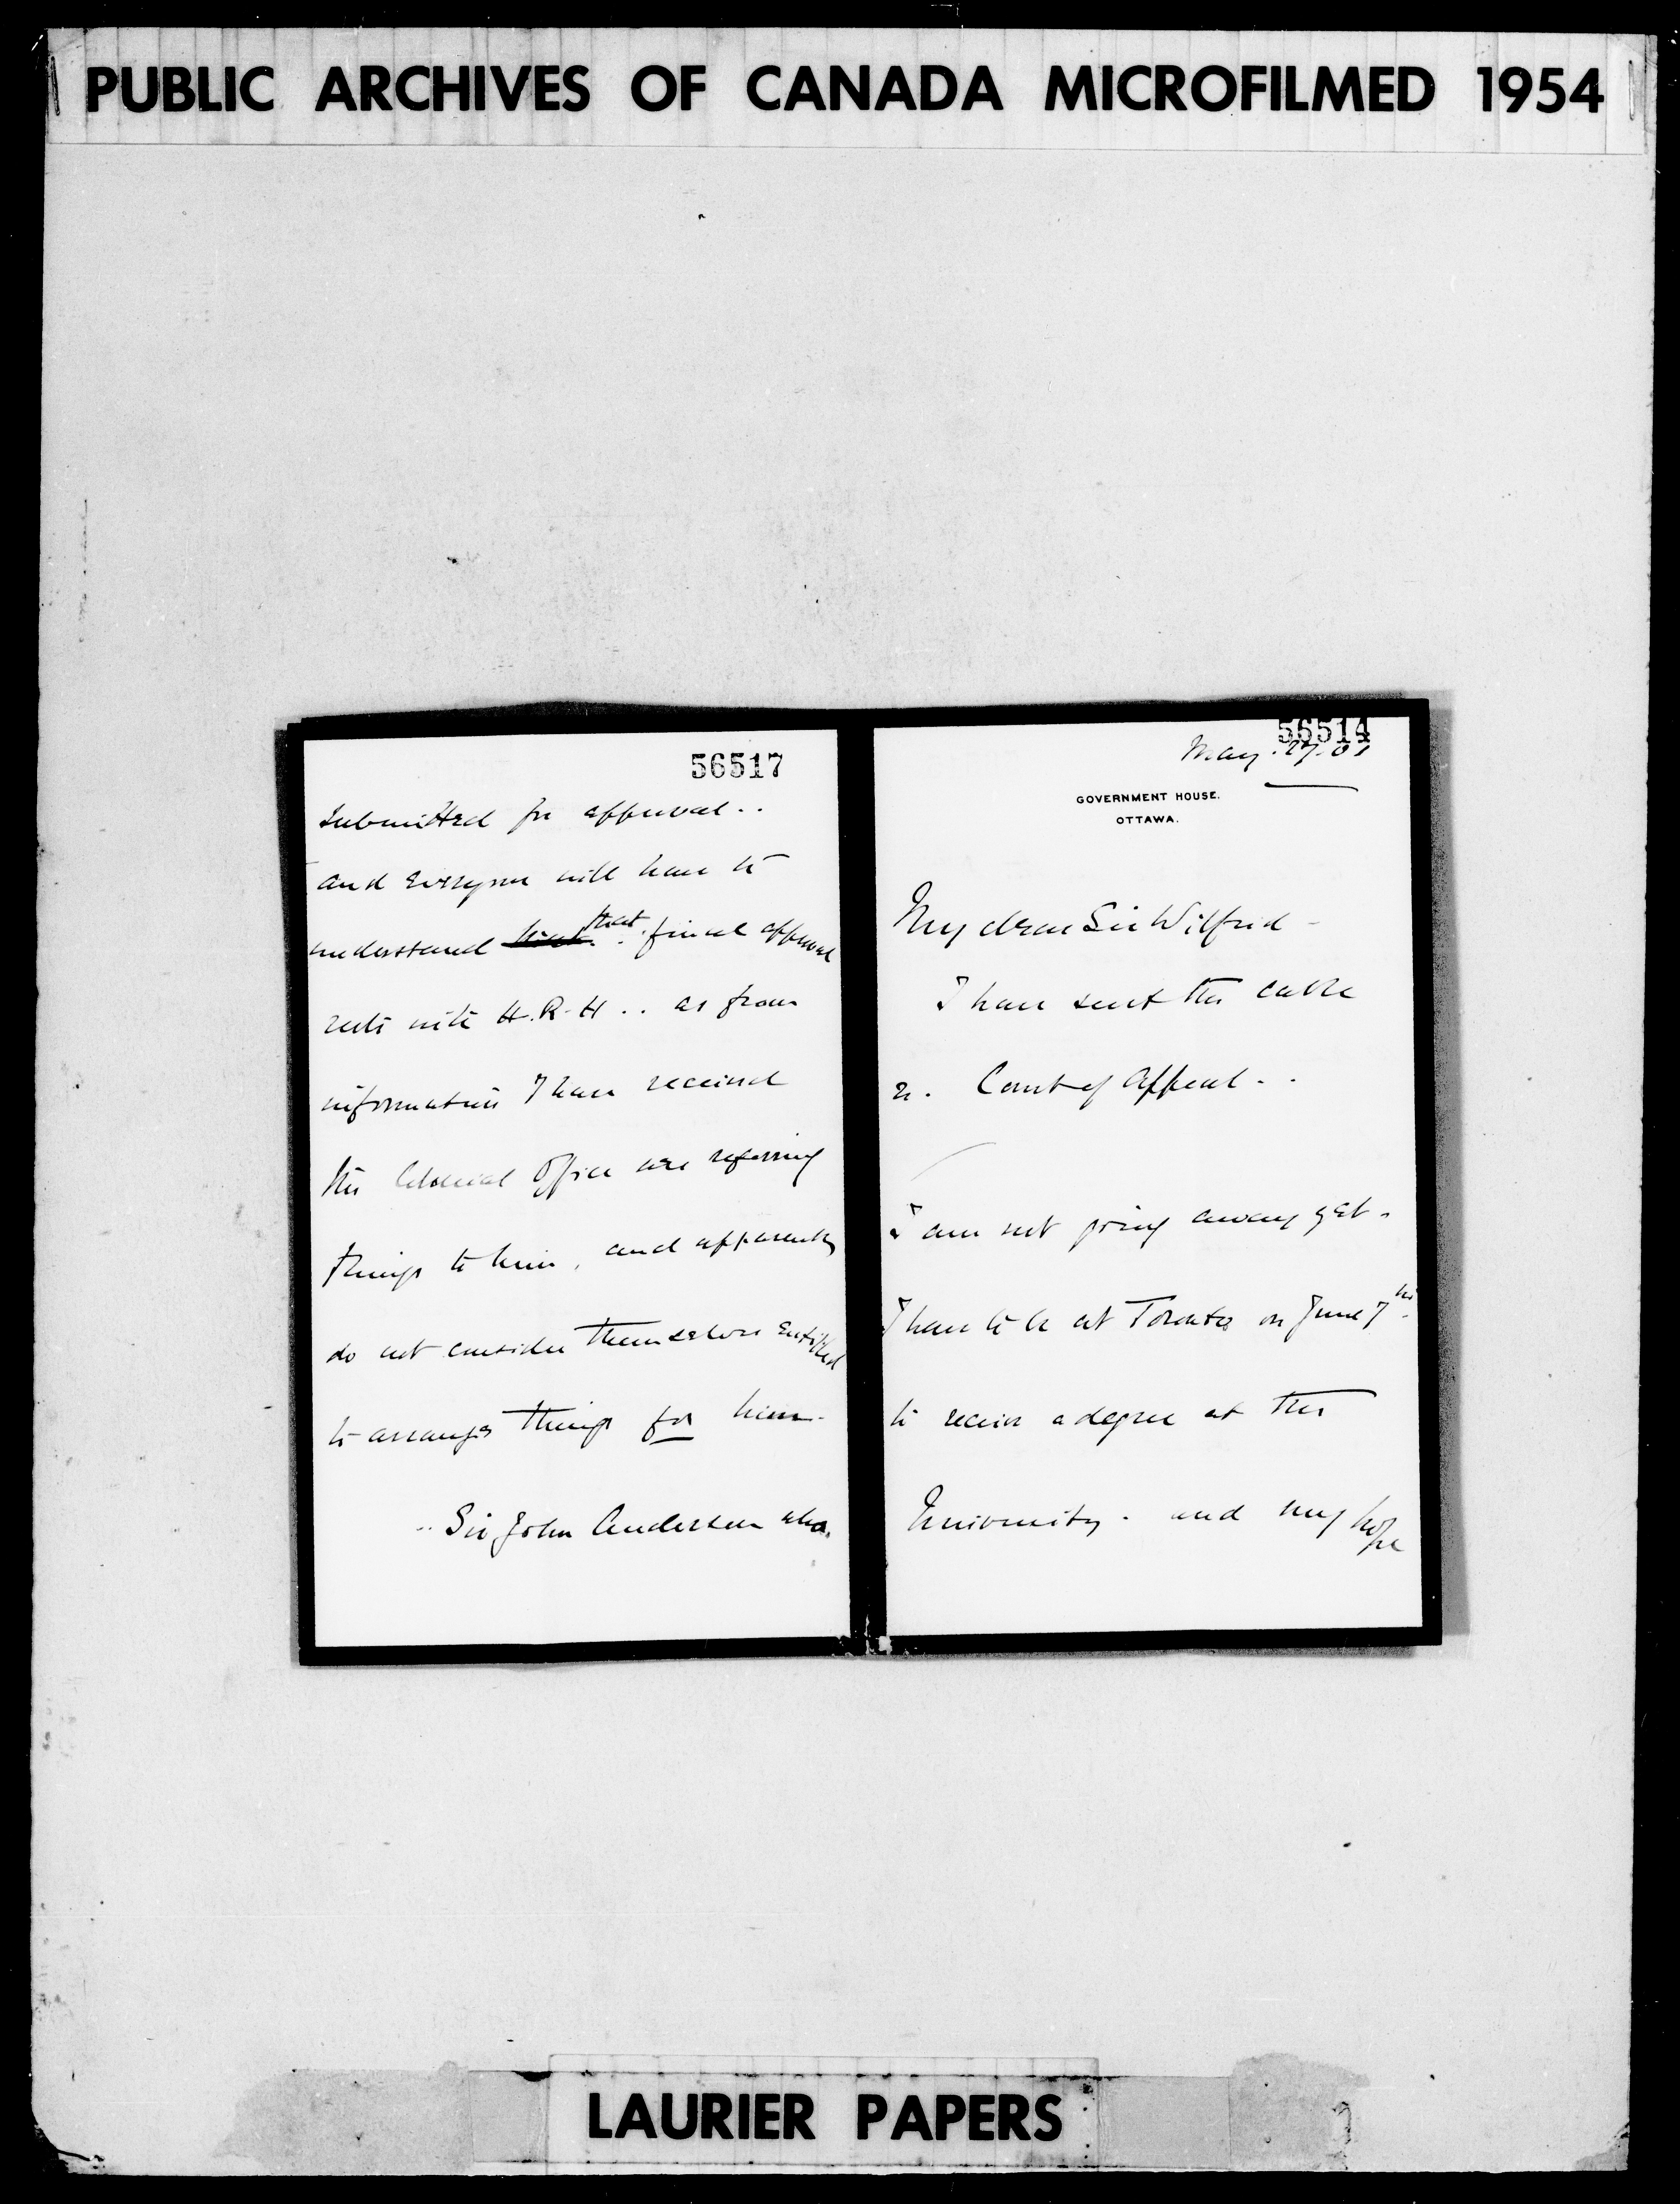 PUBLIC ARCHIVES OF CANADA MICROFILMED 1954
56517
submitted for approval..
and everyone will have to
understand that final approval
rests with H.R.H.. as from
information I have received
the Colonial Office are referring
things to him, and apparently
do not consider themselves entitled
to arrange things for him.
.. Sir John Anderson who
56514
May. 27. 01
GOVERNMENT HOUSE.
OTTAWA.
My dear Sir Wilfrid -
I have sent the cable
r. Court of Appeal..
I am not going away yet.
I have to be at Toronto on June 7th.
to receive a degree at the
University. and my hope
LAURIER PAPERS